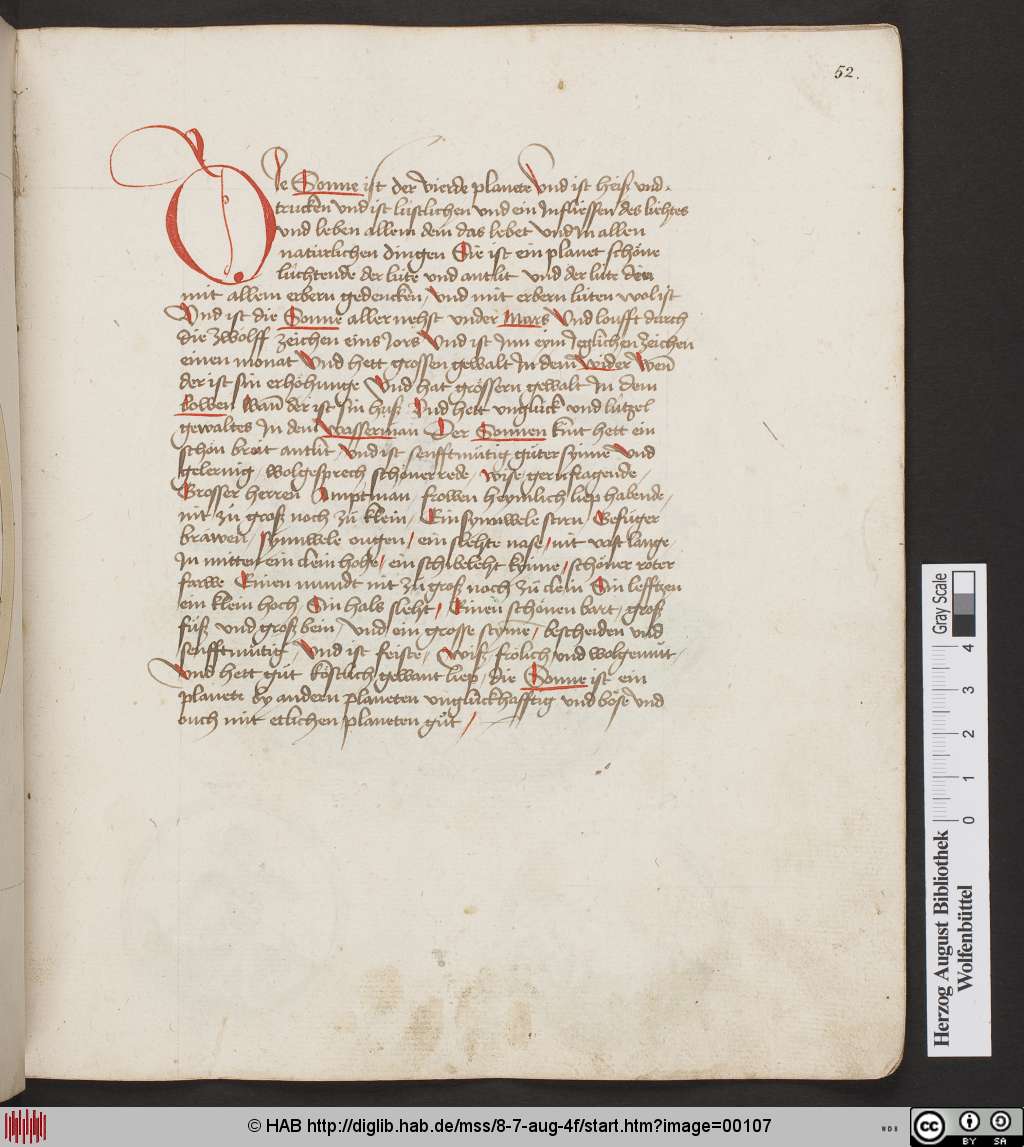 52.
Die Sonne ist der vierde planete Vnd ist heiß vnd
trucken vnd ist lüstlichen vnd ein Infliessen des liehtes
vnd leben allem dem das lebet vnd In allen
natürlichen dingen Sie ist ein planet schöne
lüchtende der lüte vnd antlit vnd der lüte
mit allem erbern gedencken / vnd mit erbern lüten wol ist
Vnd ist die Sonne aller nehst vnder Mars Vnd loufft durch
die zwölff zeichen eins Jors Vnd ist Inn eym Jeglichen zeichen
einen monat Vnd hett grossen gewalt In dem wider Wen̄
der ist sin erhöhunge Vnd hat grössern gewalt In dem
Lowen Wan̄ der ist sin huß Vnd hett vnglück vnd lützel
gewaltes In dem wasserman Der Sonnen kint hett ein
schön breit antlit / Vnd ist senfftmütig güter synne Vnd
gelernig / wolgesprech schöner rede / wise gern fragende /
Grosser herren Amptman frowen heymlich liep habende /
nit zu groß noch zü klein / Ein synnwele stirn Gefüger
brawen / synnwele ougen / ein slehte nase / nit vast lange /
In mitten ein clein hohe / ein schibeleht kynne / schöner roter
farwe Einen mundt nit zü groß noch zü clein Sin lefftzen
ein klein hoch / Sin hals sleht / Einen schönen bart / groß
füß vnd groß bein / Vnd ein grosse styme / bescheiden vnd
senfftmütig / Vnd ist feiste / Wiß frölich vnd wolgemut /
Vnd hett güt köstlich gewant liep / die Sonne ist ein
planete by andern planeten vnglückhafftig vnd böse vnd
ouch mit etlichen planeten güt /
Gray Scale
0 1 2 3 4
Herzog August Bibliothek
Wolfenbüttel
© HAB http://diglib.hab.de/mss/8-7-aug-4f/start.htm?image=00107
WDB
cc BY SA